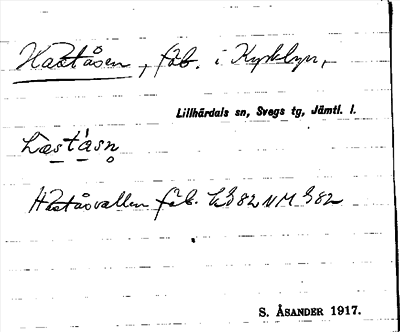 Håståsen, fäb. i Kyrkbyn,
Lillhärdals sn, Svegs tg, Jämtl. l.
Håståsvallen fäb. GS82NM S82
S. ÅSANDER 1917.